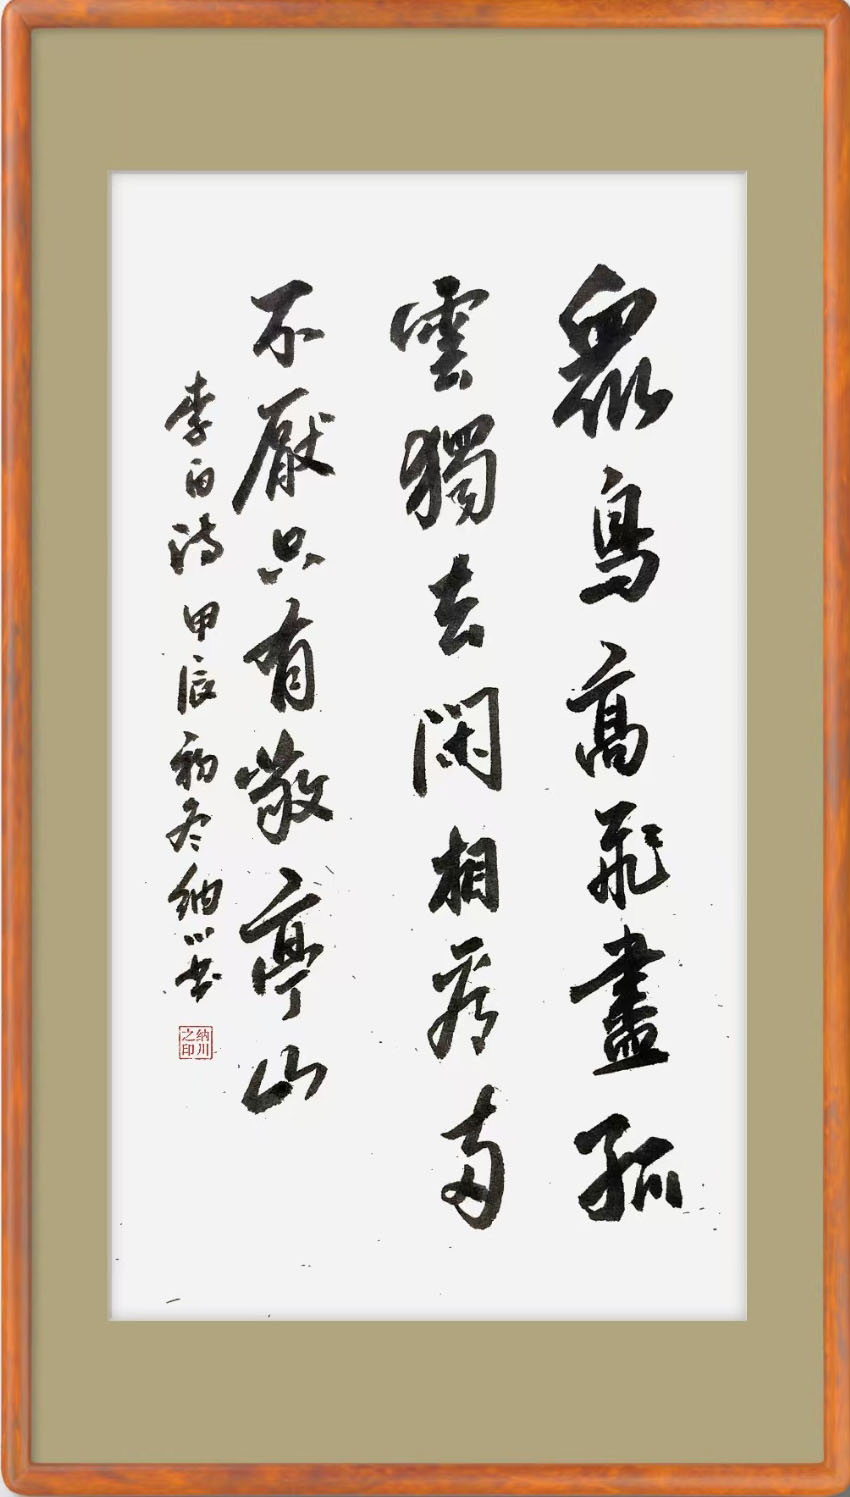 衆鳥高飛盡孤
雲獨去閑相看兩
不厭只有敬亭山
李白詩甲辰初冬納川書
纳川之印